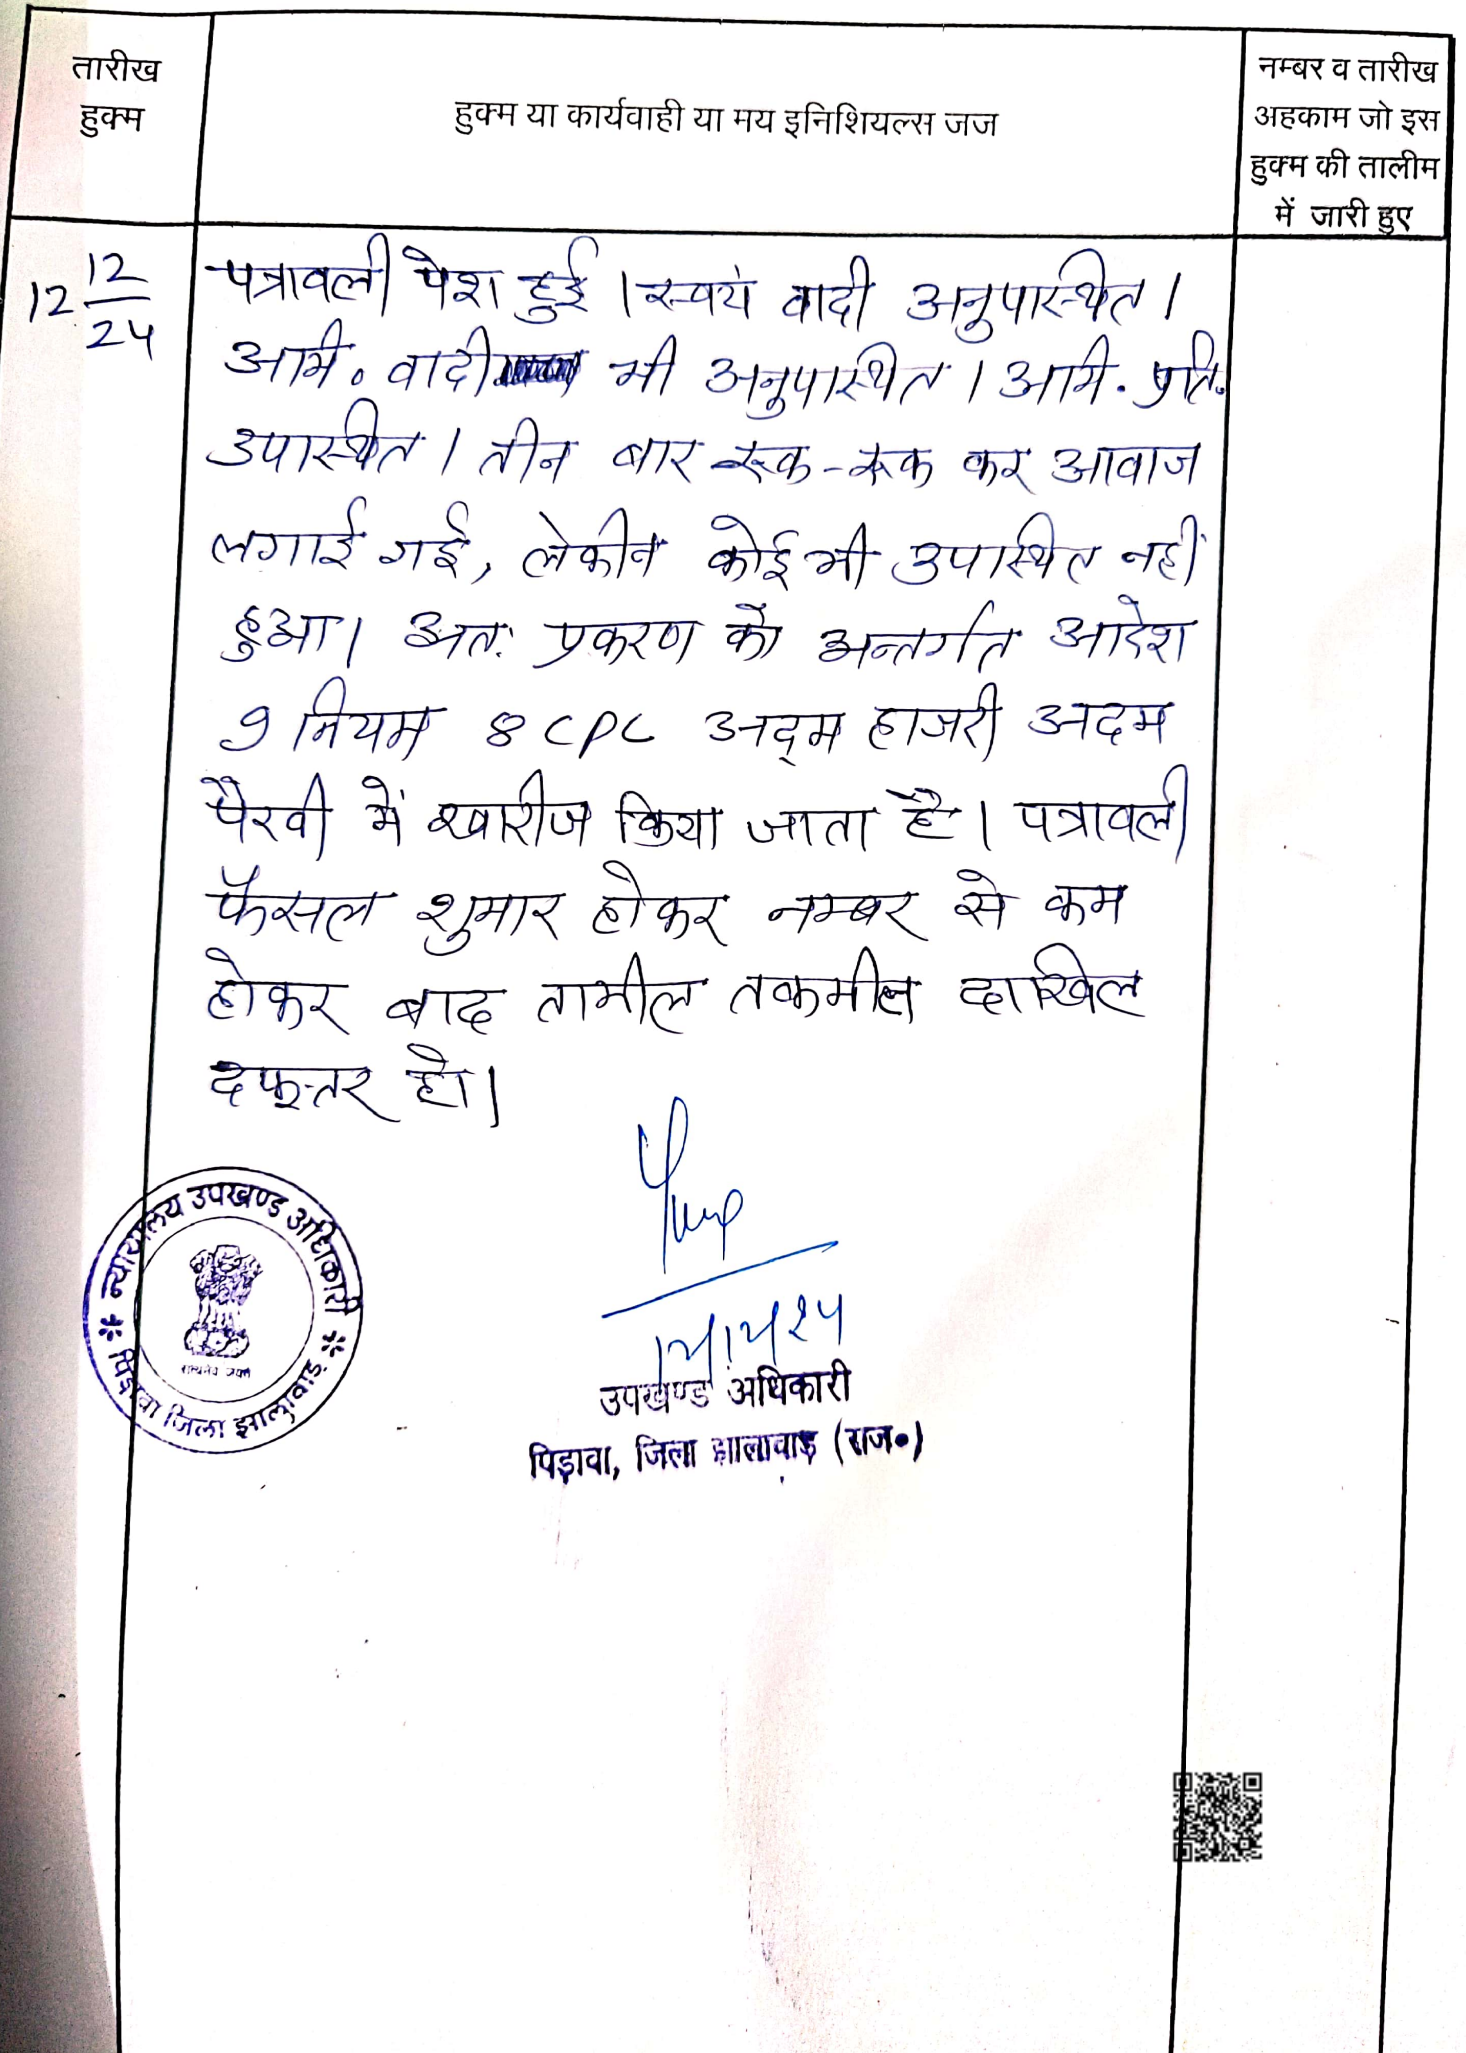 तारीख
हुक्म
हुक्म या कार्यवाही या मय इनिशियल्स जज
नम्बर व तारीख
अहकाम जो इस
हुक्म की तालीम
में जारी हुए
12 12/24
पत्रावली पेश हुई । स्वयं वादी अनुपास्थित ।
अभि. वादी भी अनुपास्थित । अभि. प्रति.
उपास्थित । तीन बार रूक-रूक कर आवाज
लगाई गई, लेकीन कोई भी उपास्थित नहीं
हुआ। अतः प्रकरण को अन्तर्गत आदेश
9 नियम 8 CPC अद्म हाजरी अदम
पैरवी में खारीज किया जाता है। पत्रावली
फैसल शुमार होकर नम्बर से कम
होकर बाद तामील तकमील दाखिल
दफ्तर हो।
न्यायालय उपखण्ड अधिकारी
सत्यमेव जयते
पिड़ावा जिला झालावाड़
उपखण्ड अधिकारी
पिड़ावा, जिला झालावाड़ (राज०)